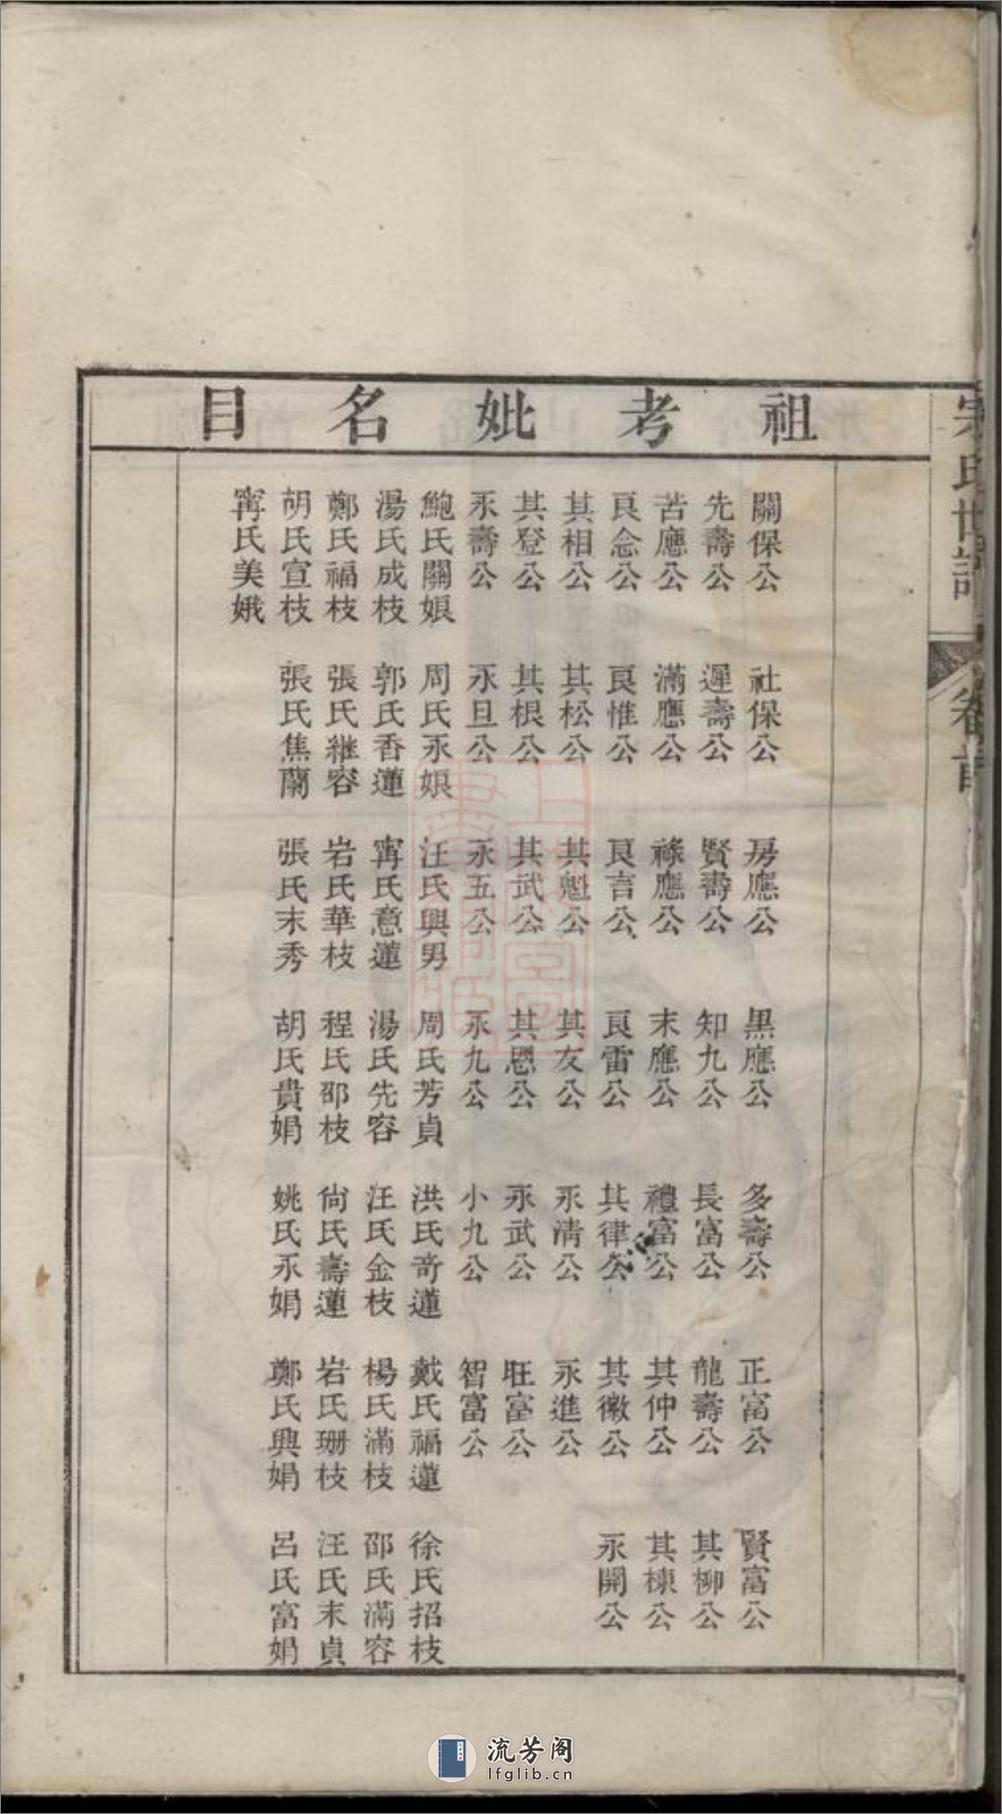 祖考妣名目
關保公 社保公 房應公 黒應公 多壽公 正富公 賢富公
先壽公 遲壽公 賢壽公 知九公 長富公 龍壽公 其柳公
苦應公 滿應公 祿應公 末應公 禮富公 其仲公 其棟公
良念公 良惟公 良言公 良雷公 其律公 其徽公 永開公
其相公 其松公 其魁公 其友公 永清公 永進公
其登公 其根公 其武公 其恩公 永武公 旺富公
永壽公 永旦公 永五公 永九公 小九公 智富公
鮑氏關娘 周氏永娘 汪氏興男 周氏芳貞 洪氏奇蓮 戴氏福蓮 徐氏招枝
湯氏成枝 郭氏香蓮 甯氏意蓮 湯氏先容 汪氏金枝 楊氏滿枝 邵氏滿容
鄭氏福枝 張氏継容 岩氏華枝 程氏邵枝 尙氏壽蓮 岩氏珊枝 汪氏末貞
胡氏宣枝 張氏焦蘭 張氏末秀 胡氏貴娟 姚氏永娟 鄭氏興娟 呂氏富娟
甯氏美娥
宗氏世譜
卷首
流芳阁
lfglib.cn